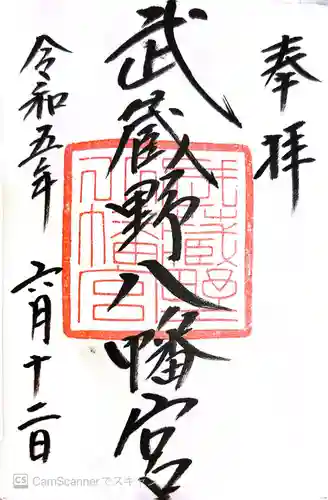 奉拝
武蔵野八幡宮
令和五年 六月十二日
武蔵野八幡宮
CS CamScannerでスキャン